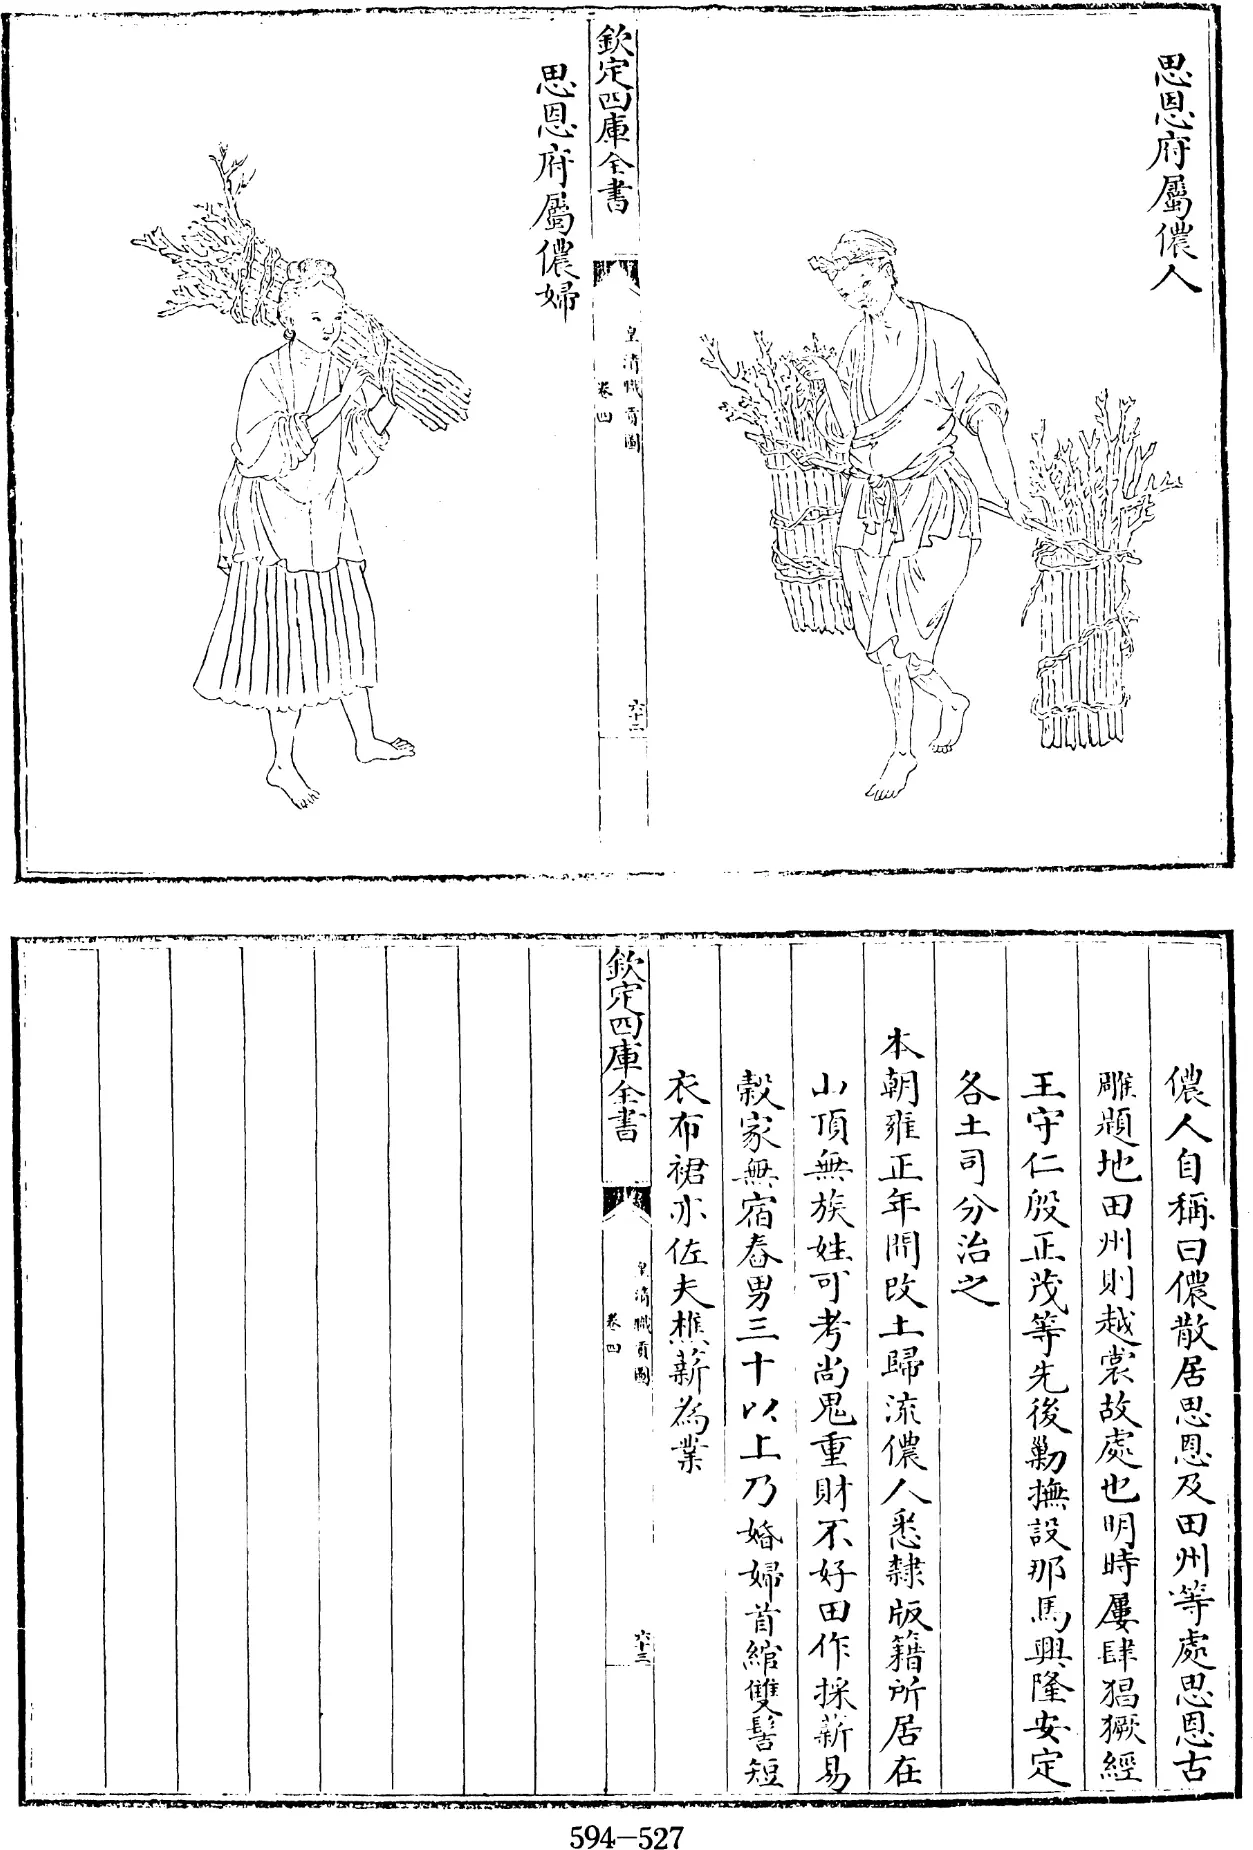 思恩府屬儂人
欽定四庫全書
皇清職貢圖
卷四
六十二
思恩府屬儂婦
儂人自稱曰儂散居思恩及田州等處思恩古
雕題地田州則越裳故處也明時屢肆猖獗經
王守仁殷正茂等先後勦撫設那馬興隆安定
各土司分治之
本朝雍正年間改土歸流儂人悉隸版籍所居在
山頂無族姓可考尚鬼重財不好田作採薪易
穀家無宿舂男三十以上乃婚婦首綰雙髻短
衣布裙亦佐夫樵薪為業
欽定四庫全書
皇清職貢圖
卷四
六十三
594-527